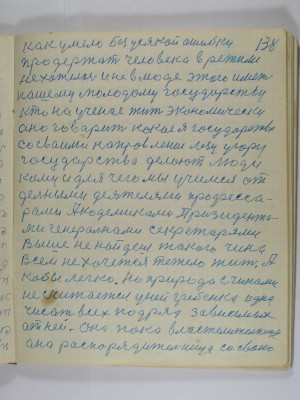 138
как умело без усякой ошибки
продержат человека в режыми
не хателы и не в моде этого имет
нашему молодому государству
кто на ученае жит экономическу
ано говарыт какая государство
со сваими направлении лезу у гору
государства делают люди
кому и для чего мы учимся от
делными деятелями професса-
рами Академиками Призидента-
ми генералнами секретарями
Выше не найдеш такого чина
Всем не хочется тежело жит, А
кабы легко. Но природа с чинами
не считается у ней гребенка одна
чисать всех подряд зависемых
от ней. Она пока властелителница
ана распорядителница со своею